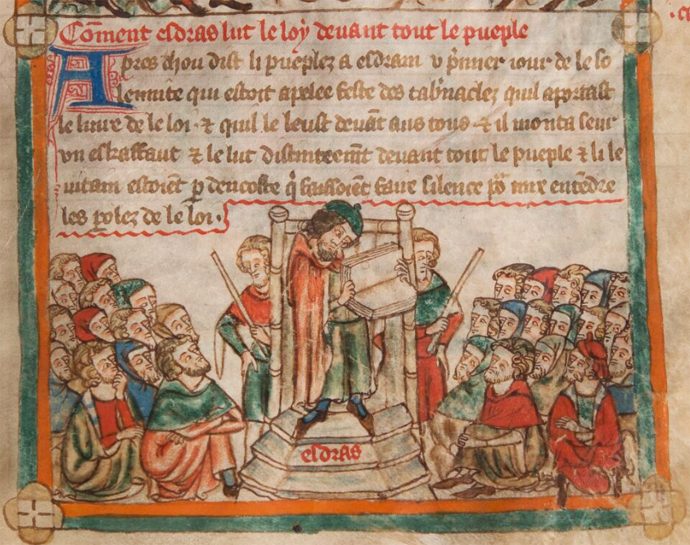 Coment esdras lut le loy devant tout le pueple
Apres chou dist li pueplez a esdram v pmier iour de le so
lennite qui estoit apelee feste des tab'naclez quil aportast
le liure de le loi · ⁊ quil le leust devant aus tous ⁊ il monta seur
vn eskaffaut ⁊ le lut devant tout le pueple ⁊ li le
uitam estoiēt p dencoste q̄ faisoient faire silence po' mix entēdre
les polez de le loi ·
esdras